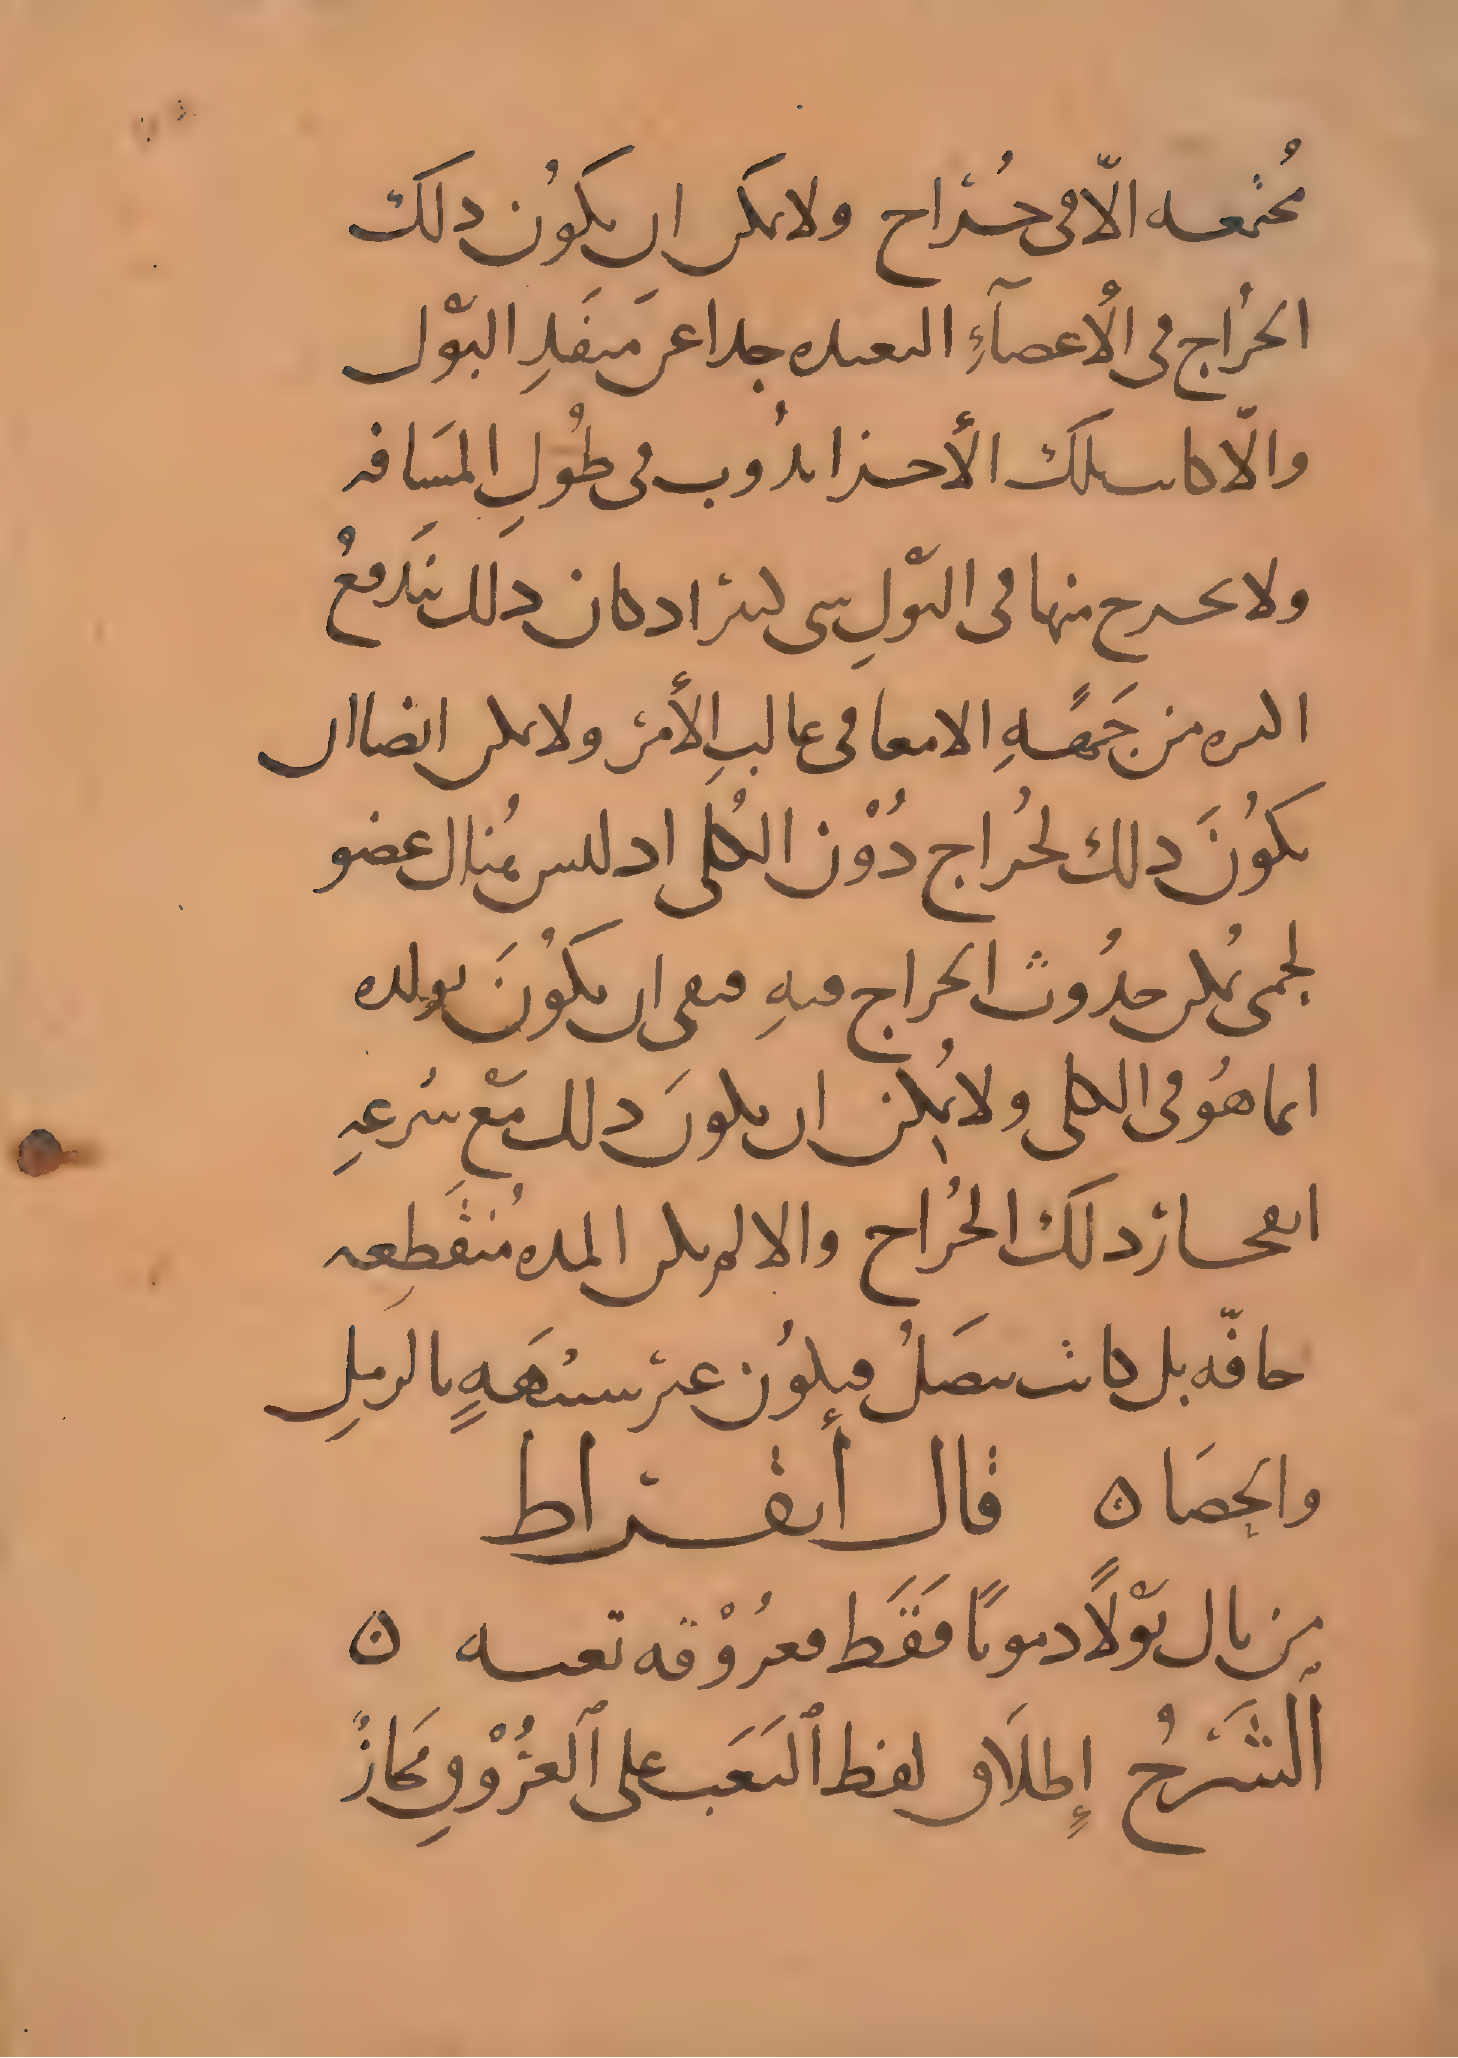 مجتمعه الّا في خُراج ولا يمكن ان يكون ذلك
الخُراج في الأعضآءِ البعيده جدا عن منفَذِ البَوْل
والّا كانت تلك الأجزا تذُوب في طُولِ المسَافه
ولا يخرج منها في البَوْلِ شي كثير اذ كان ذلك يندَفعُ
اكثره من جهَهِ الامعا في غالبِ الأمر ولا يمكن ايضا ان
يكُونَ ذلك لخُراج دُوْن الكُلى اذ ليس هُناك عضو
لحمى يُمكن حدُوث الخراج فيهِ فبقى ان يكُونَ تولده
انما هُو في الكلى ولا يُمكن ان يكونَ ذلك مَعْ سُرعهِ
انفجار ذلك الخُراج والا لم تكن المده مُنقَطِعه
جافّه بل كانت تتصَلُ فيكُون غير شبيهَهٍ بالرملِ
والحصَا ٥ قال أبقراط
من بال بَوْلًا دمويًا فقَط فعرُوْقه تعبه ٥
ٱلشَّرْحُ إِطلَاق لفظ ٱلتعَب على ٱلعرُوْقِ مجَازٌ